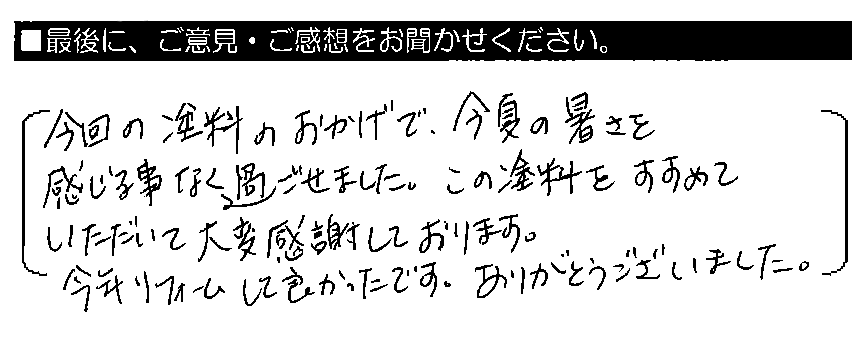 ■最後に、ご意見・ご感想をお聞かせください。
今回の塗料のおかげで、今夏の暑さを
感じる事なく過ごせました。この塗料をすすめて
いただいて大変感謝しております。
今年リフォームして良かったです。ありがとうございました。